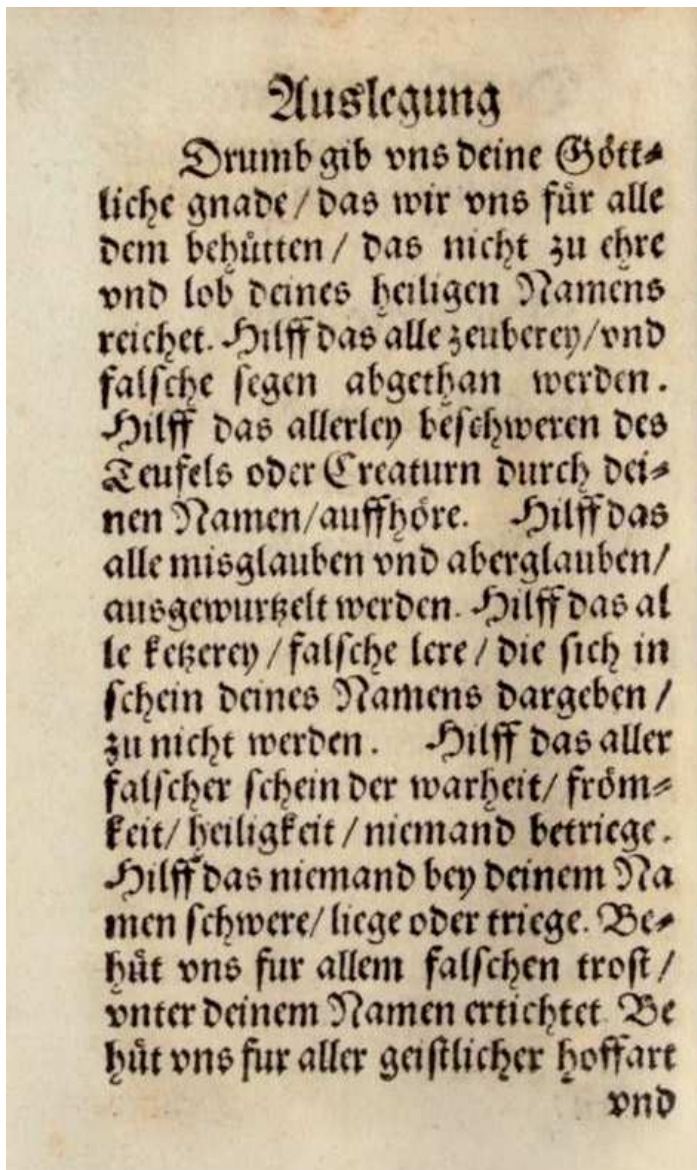 Auslegung
Drumb gib vns deine Gött⸗
liche gnade / das wir vns für alle
dem behütten / das nicht zu ehre
vnd lob deines heiligen Namens
reichet. Hilff das alle zeuberey / vnd
falsche segen abgethan werden.
Hilff das allerley beschweren des
Teufels oder Creaturn durch dei⸗
nen Namen / auffhöre. Hilff das
alle misglauben vnd aberglauben /
ausgewurtzelt werden. Hilff das al
le ketzerey / falsche lere / die sich in
schein deines Namens dargeben /
zu nicht werden. Hilff das aller
falscher schein der warheit / fröm⸗
keit / heiligkeit / niemand betriege.
Hilff das niemand bey deinem Na
men schwere / liege oder triege. Be⸗
hüt vns fur allem falschen trost /
vnter deinem Namen ertichtet. Be
hüt vns fur aller geistlicher hoffart
vnd